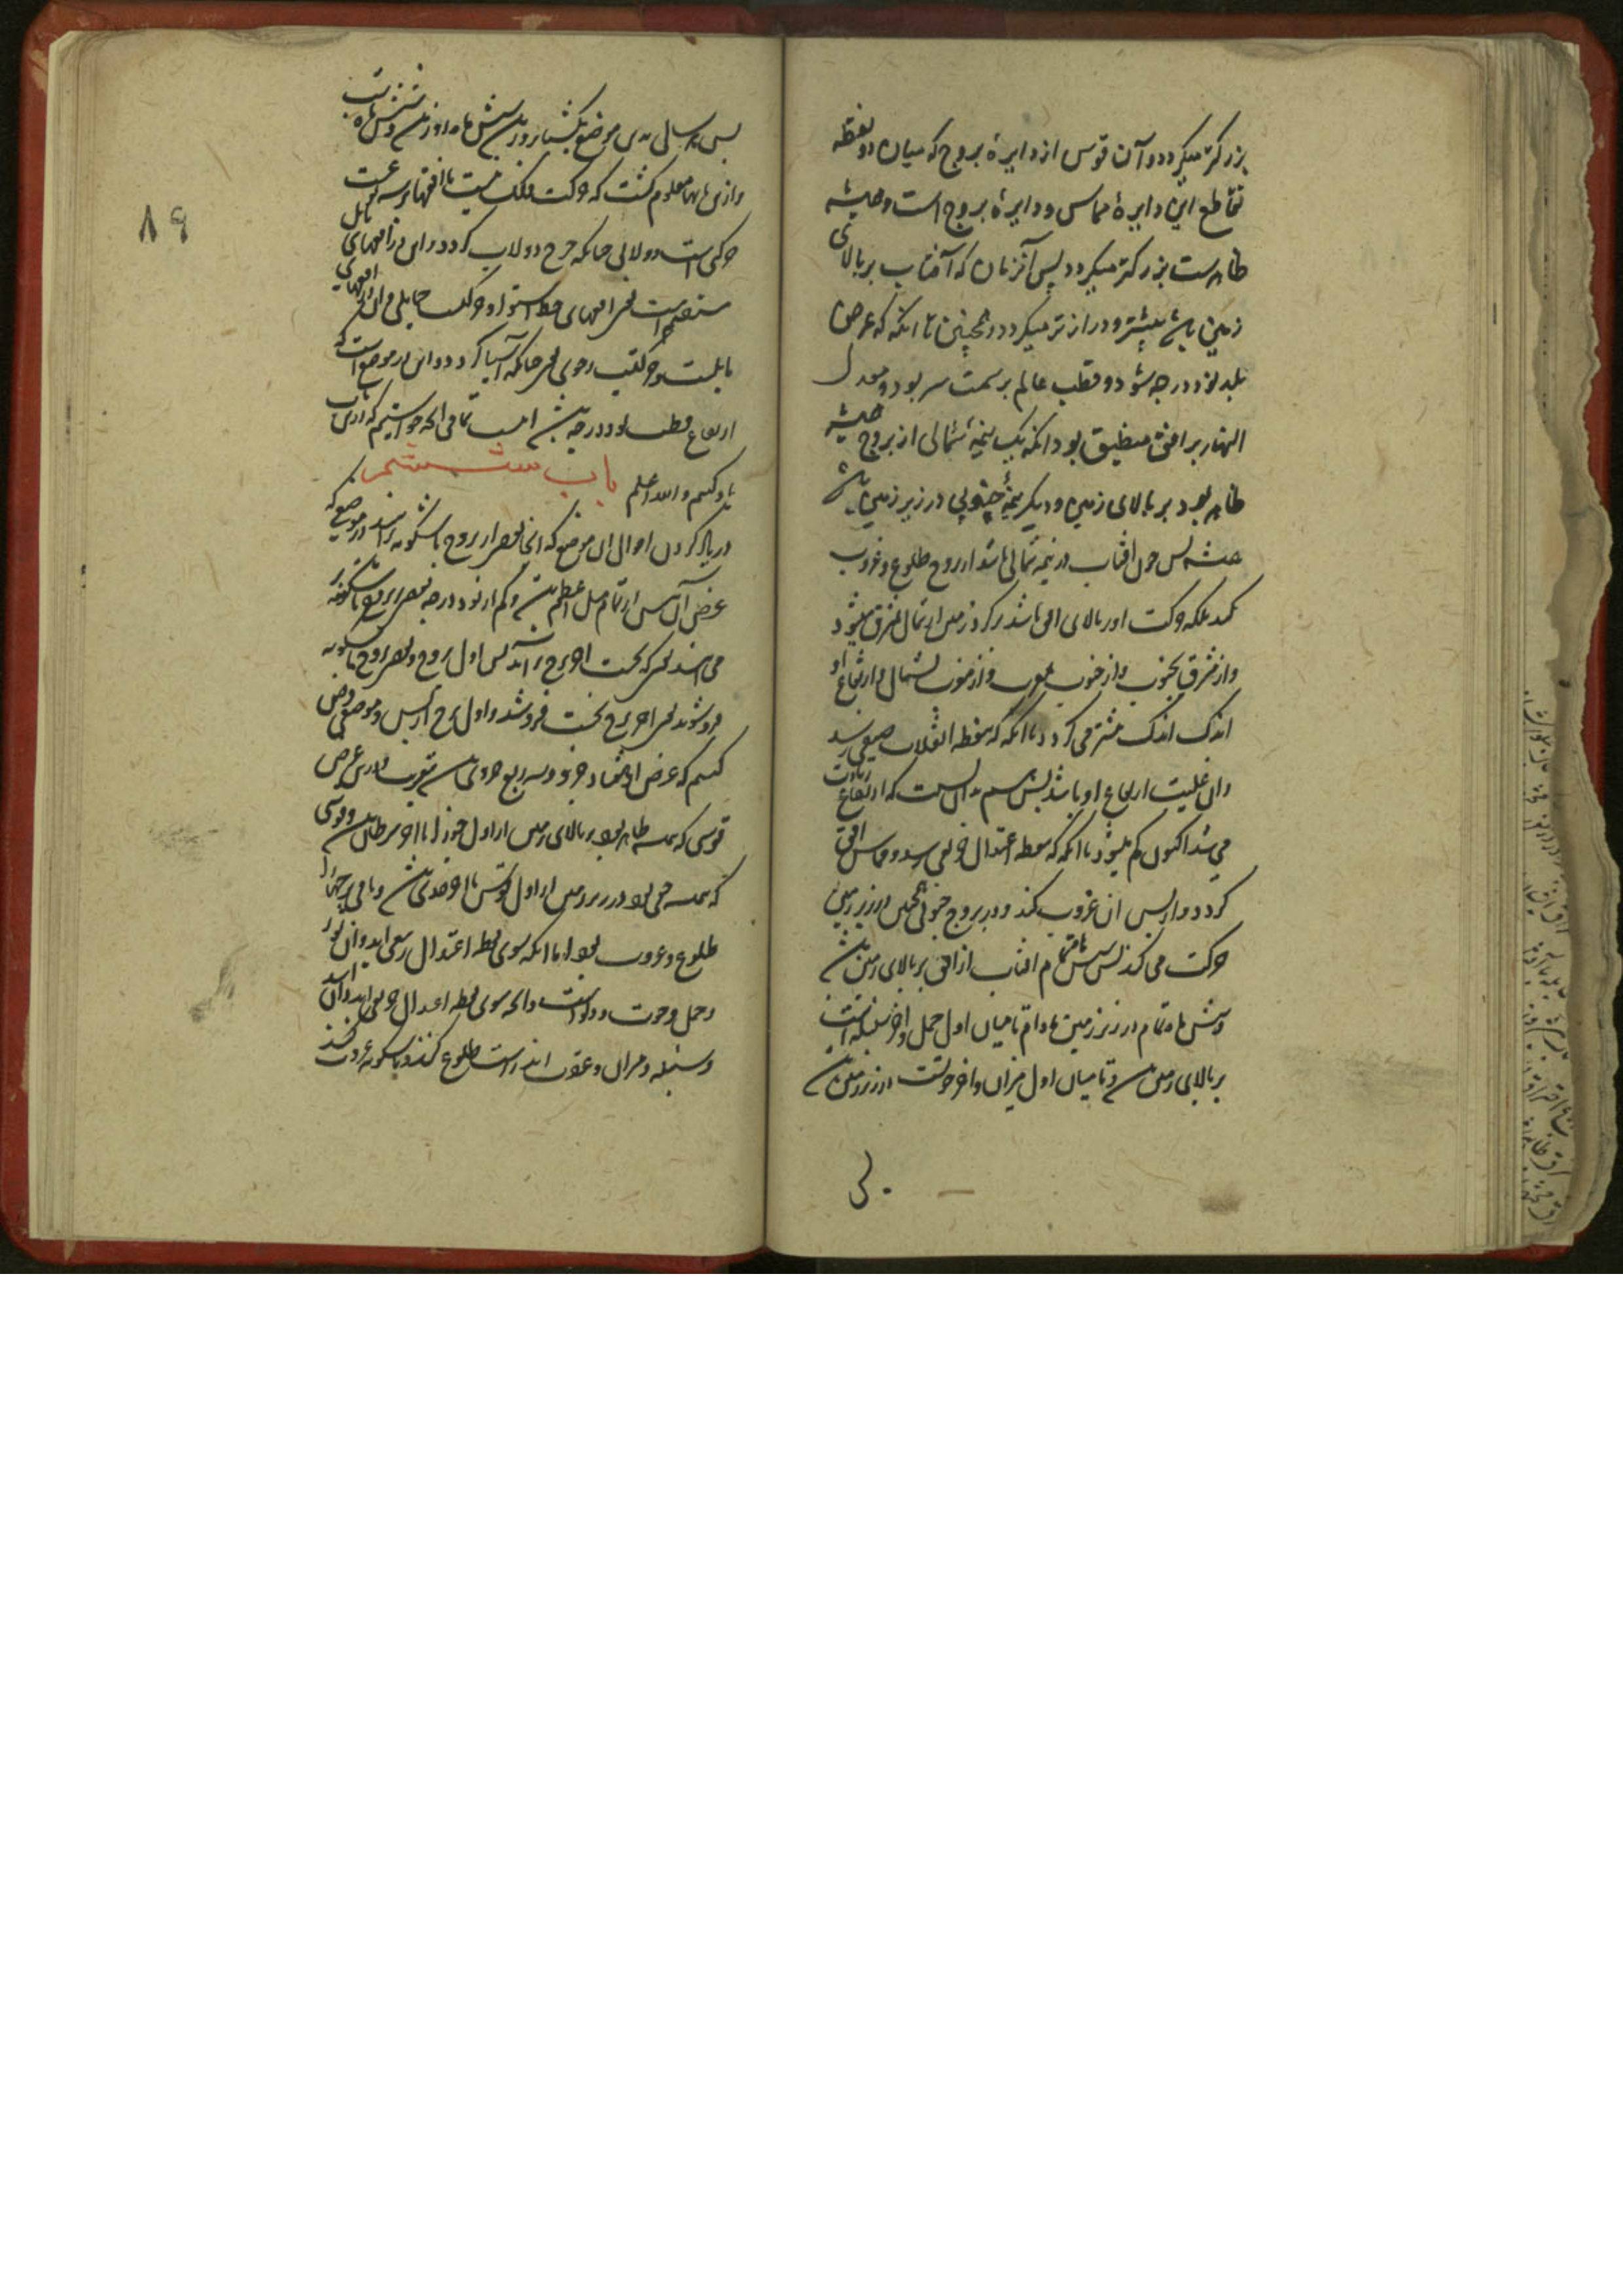 بزرکتر میکردد و آن قوس از دایرهٔ بروج که میان دو نقطه
تقاطع این دایرهٔ مماس و دایرهٔ بروج است و همیشه
ظاهرست بزرکتر میکردد پس آنزمان که آفتاب بر بالای
زمین باشد بیشتر و درازتر میکردد و همچنین تا انکه که عرض
بلد نود درجه شود و قطب عالم بر سمت سر بود و معدل
النهار بر افق منطبق بود انکه یک نیمهٔ شمالی از بروج همیشه
ظاهر بود بر بالای زمین و دیکر نیمهٔ جنوبی در زیر زمین باشد
همیشه پس چون افتاب در نیمه شمالی باشد از بروج طلوع و غروب
نکند بلکه حرکت او بر بالای افق باشد بر کرد زمین از شمال بمشرق میشود
و از مشرق بجنوب و از جنوب بمغرب و از مغرب بشمال و ارتفاع او
اندک اندک بیشتر می کردد تا انکه که بنقطه انقلاب صیفی رسد
و ان غایت ارتفاع او باشد پس بدان نسبت که ارتفاع زیادت
می شد اکنون کم میشود تا انکه که بنقطه اعتدال خریفی رسد و مماس افق
کردد و از پس ان غروب کند و در بروج جنوبی همچنین در زیر زمین
حرکت می کند پس شش ماه تمام افتاب از افق بر بالای زمین باشد
و شش ماه تمام در زیر زمین مادام تا میان اول حمل و اخر سنبله است
بر بالای زمین باشد و تا میان اول میزان و اخر حوتست در زیر زمین باشد
پس
۸۹
پس هر سالی بدین موضع یک شبانروز باشد شش ماه روز باشد و شش ماه شب
و ازین بابها معلوم کشت که حرکت فلک نسبت با افقها بر سه نوعست
حرکتی است دولابی چنانکه چرخ دولاب کردد و این در افقهای
مستقیم است یعنی افقهای خط استوا و حرکت حمایلی و این در افقهای مایل
مایلست و حرکتیست رحوی یعنی چنانکه آسیا کردد و این در موضعی است که
ارتفاع قطب نود درجه باشد اینست تمامی انچه خواستیم که درین باب
یاد کنیم و الله اعلم باب ششم
در یاد کردن احوال ان موضع که انجا بعضی از بروج باشکونه برایند در موضعی که
عرض آن بیش از تمام میل اعظم باشد و کم از نود درجه بعضی بروج باشکونه
می ایند یعنی که نخست اخر برج بر آید پس اول بروج و بعضی بروج باشکونه
فرو شوند یعنی اخر برج نخست فرو شود و اول برج از پس و موضعی فرض
کنیم که عرض او هفتاد جزو و سه ربع جزوی باشد بتقریب و درین عرض
قوسی که همیشه ظاهر بود بر بالای زمین از اول جوزا تا اخر سرطان باشد و قوسی
که همیشه خفی بود در زیر زمین از اول قوس تا اخر جدی باشد و باقی برجها را
طلوع و غروب بود اما انکه سوی نقطه اعتدال ربیعی اید و ان ثور
و حمل و حوت و دلو است و انچه سوی نقطه اعتدال خریفی اید و ان اسد
و سنبله و میزان و عقرب اند راست طلوع کنند و باشکونه غروب کنند